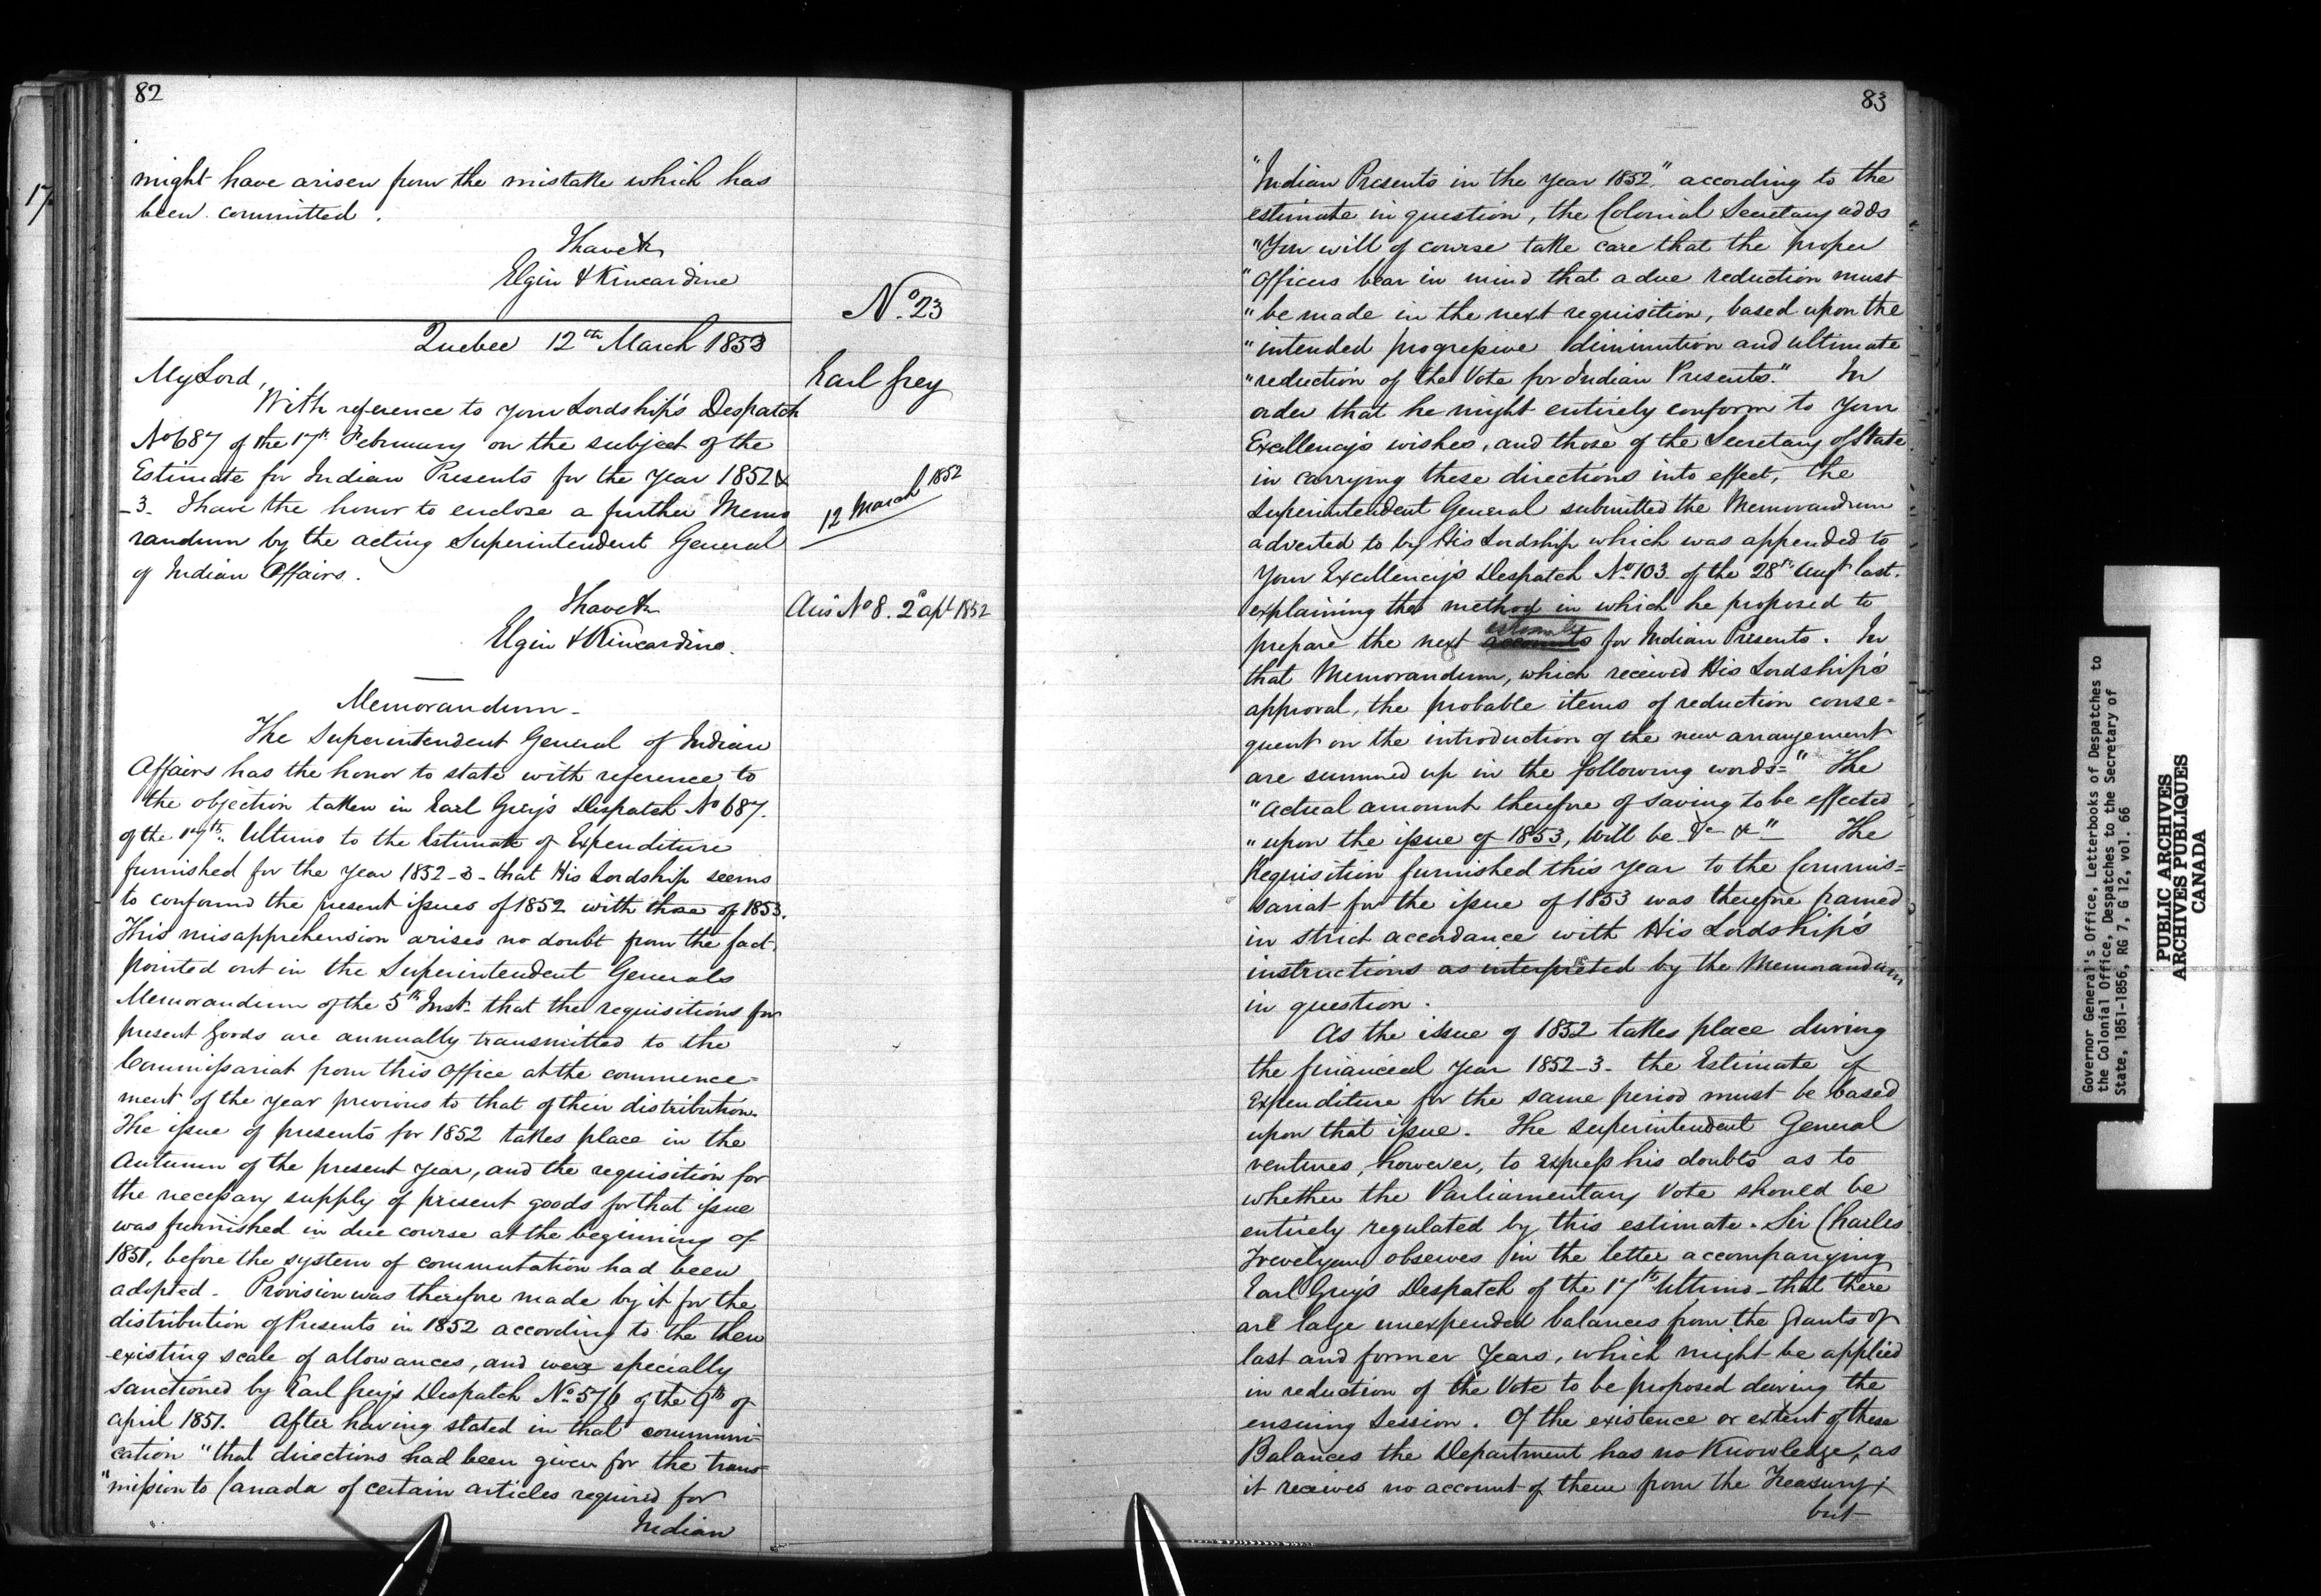 82
17
might have arisen from the mistake which has
been committed.
I have &c
Elgin & Kincardine
No. 23
Quebec 12th March 1853
Earl Grey
My Lord,
With reference to your Lordship's Despatch
No 687 of the 17th February on the subject of the
Estimate for Indian Presents for the year 1852 &
-3- I have the honor to enclose a further Memo
12 March 1852
randum by the acting Superintendent General
of Indian Affairs.
I have &c
Elgin & Kincardine.
Ans No 8. 2d apl 1852
Memorandum-
The Superintendent General of Indian
Affairs has the honor to state with reference to
the objection taken in Earl Grey's Despatch No 687.
of the 17th. Ultimo to the Estimate of Expenditure
furnished for the year 1852-3- that His Lordship seems
to confound the present issues of 1852 with those of 1853.
This misapprehension arises no doubt from the fact,
pointed out in the Superintendent Generals
Memorandum of the 5th Inst- that the requisitions for
present Goods are annually transmitted to the
Commissariat from this Office at the commence=
ment of the year previous to that of their distribution.
The issue of presents for 1852 takes place in the
Autumn of the present year, and the requisition for
the necessary supply of present goods for that issue
was furnished in due course at the beginning of
1851, before the system of commutation had been
adopted- Provision was therefore made by it for the
distribution of Presents in 1852 according to the then
existing scale of allowances, and were specially
sanctioned by Earl Grey's Despatch No. 576 of the 9th of
April 1851. After having stated in that communi=
cation "that directions had been given for the trans
"mission to Canada of certain articles required for
Indian
83
"Indian Presents in the year 1852," according to the
estimate in question, the Colonial Secretary adds
"You will of course take care that the proper
"Officers bear in mind that a due reduction must
"be made in the next requisition, based upon the
"intended progressive diminution and ultimate
"reduction of the Vote for Indian Presents." In
order that he might entirely conform to Your
Excellency's wishes, and those of the Secretary of State
in carrying these directions into effect, the
Superintendent General submitted the Memorandum
adverted to by His Lordship which was appended to
Your Excellency's Despatch No. 103 of the 28th Augt last.
explaining the method in which he proposed to
estimate
prepare the next accounts for Indian Presents. In
that Memorandum, which received His Lordship's
approval, the probable items of reduction conse=
quent on the introduction of the new arrangement
are summed up in the following words=" The
"actual amount therefore of saving to be effected
"upon the issue of 1853, will be &c &c" The
Requisition furnished this year to the Commis=
sariat for the issue of 1853 was therefore framed
in strict accordance with His Lordship's
instructions as interpreted by the Memorandum
in question.
As the issue of 1852 takes place during
the financial year 1852-3- the Estimate of
Expenditure for the same period must be based
upon that issue. The Superintendent General
ventures, however, to express his doubts as to
whether the Parliamentary Vote should be
entirely regulated by this estimate. Sir Charles
Trevelyan observes in the letter accompanying
Earl Grey's Despatch of the 17th Ultimo- that there
are large unexpended balances from the Grants of
last and former Years, which might be applied
in reduction of the Vote to be proposed during the
ensuing Session. Of the existence or extent of these
Balances the Department has no Knowledge, as
it receives no account of them from the Treasury;
but
Governor General's Office, Letterbooks of Despatches to
the Colonial Office, Despatches to the Secretary of
State, 1851-1856, RG 7, G 12, vol. 66
PUBLIC ARCHIVES
ARCHIVES PUBLIQUES
CANADA